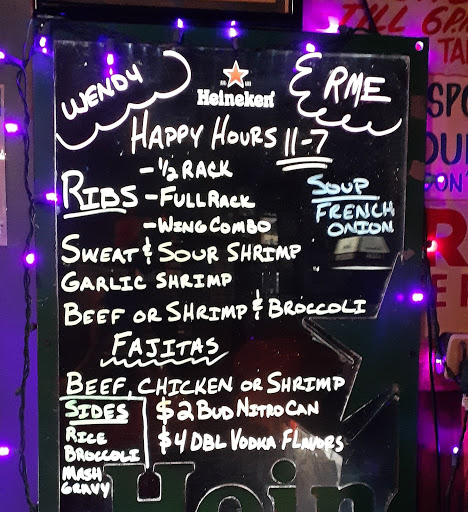 WENDY
Heineken
RME
HAPPY HOURS 11-7
RIBS
- 1/2 RACK
- FULL RACK
- WING COMBO
SOUP
FRENCH
ONION
SWEAT & SOUR SHRIMP
GARLIC SHRIMP
BEEF OR SHRIMP & BROCCOLI
FAJITAS
BEEF, CHICKEN OR SHRIMP
SIDES
RICE
BROCCOLI
MASH
GRAVY
$2 BUD NITRO CAN
$4 DBL VODKA FLAVORS
Hein
TILL 6P.M
TA
SPO